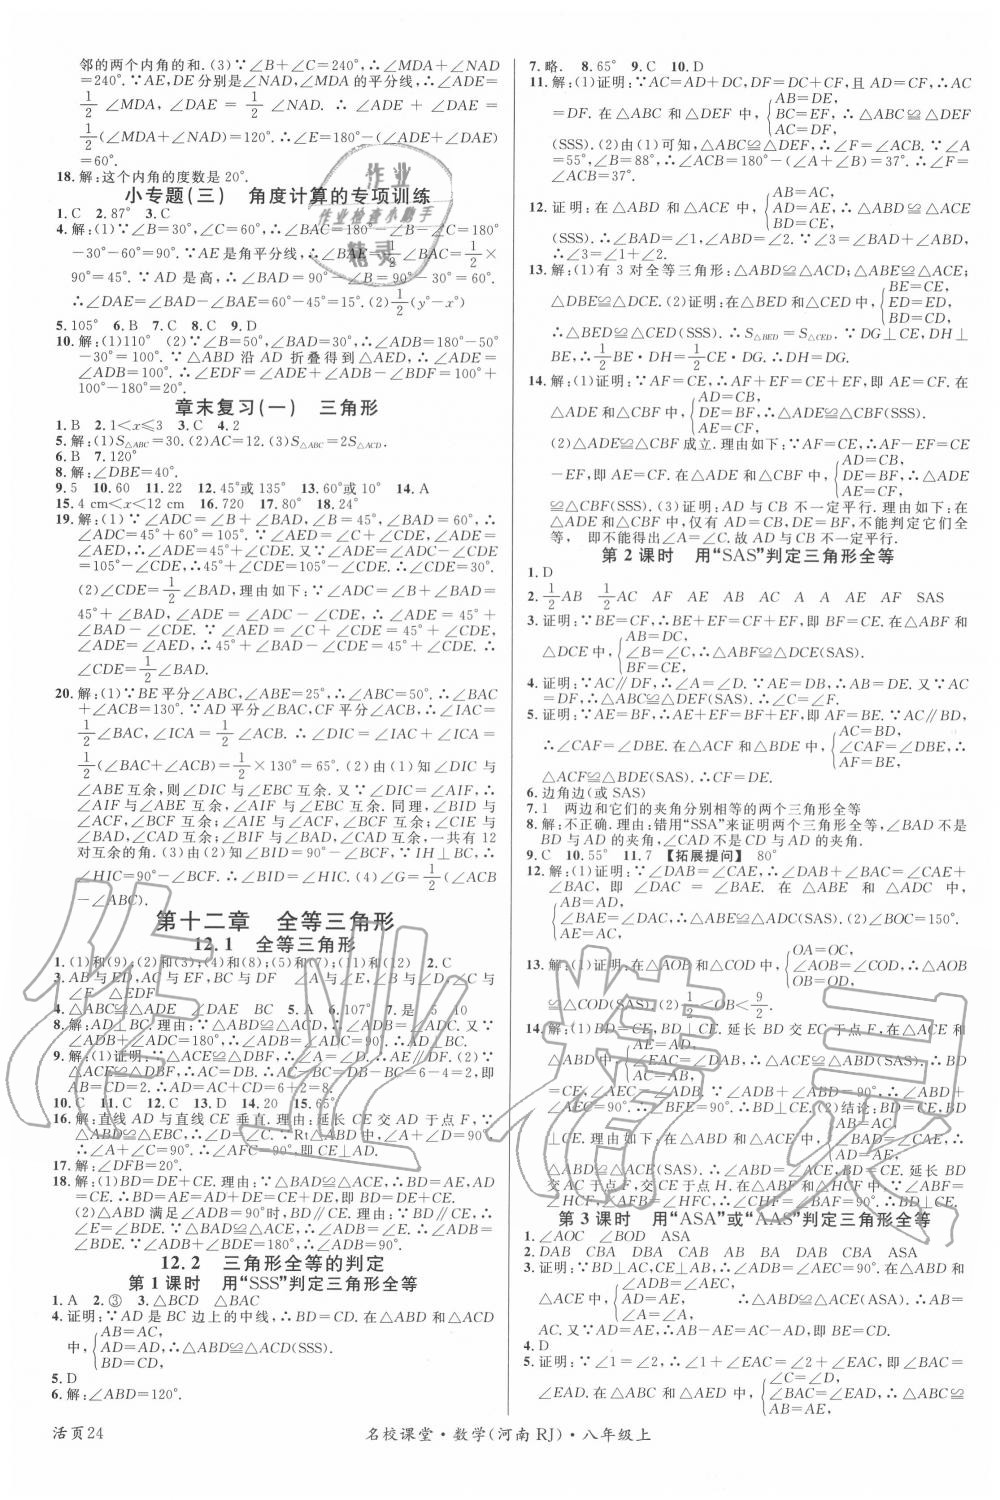 邻的两个内角的和.(3)∵∠B+∠C=240°,∴∠MDA+∠NAD
=240°.∵AE,DE分别是∠NAD,∠MDA的平分线,∴∠ADE=
1/2∠MDA,∠DAE=1/2∠NAD.∴∠ADE+∠DAE=
1/2(∠MDA+∠NAD)=120°.∴∠E=180°-(∠ADE+∠DAE)
=60°.
18.解:这个内角的度数是20°.
小专题(三) 角度计算的专项训练
1.C 2.87° 3.C
4.解:(1)∵∠B=30°,∠C=60°,∴∠BAC=180°-∠B-∠C=180°
-30°-60°=90°.∵AE是角平分线,∴∠BAE=1/2∠BAC=1/2×
90°=45°.∵AD是高,∴∠BAD=90°-∠B=90°-30°=60°.
∴∠DAE=∠BAD-∠BAE=60°-45°=15°.(2)1/2(y°-x°)
5.105° 6.B 7.C 8.C 9.D
10.解:(1)110° (2)∵∠B=50°,∠BAD=30°,∴∠ADB=180°-50°
-30°=100°.∵△ABD沿AD折叠得到△AED,∴∠ADE=
∠ADB=100°.∴∠EDF=∠ADE+∠ADB-∠BDF=100°+
100°-180°=20°.
章末复习(一) 三角形
1.B 2.1<x≤3 3.C 4.2
5.解:(1)S△ABC=30.(2)AC=12.(3)S△ABC=2S△ACD.
6.B 7.120°
8.解:∠DBE=40°.
9.5 10.60 11.22 12.45°或135° 13.60°或10° 14.A
15.4 cm<x<12 cm 16.720 17.80° 18.24°
19.解:(1)∵∠ADC=∠B+∠BAD,∠B=45°,∠BAD=60°,∴
∠ADC=45°+60°=105°.∵∠AED=∠C+∠CDE,∠ADE=
∠AED,∴∠ADE=45°+∠CDE.又∵∠ADE=∠ADC-
∠CDE=105°-∠CDE,∴45°+∠CDE=105°-∠CDE.∴∠CDE=30°.
(2)∠CDE=1/2∠BAD,理由如下:∵∠ADC=∠B+∠BAD=
45°+∠BAD,∠ADE=∠ADC-∠CDE,∴∠ADE=45°+
∠BAD-∠CDE.∵∠AED=∠C+∠CDE=45°+∠CDE,
∠ADE=∠AED,∴45°+∠BAD-∠CDE=45°+∠CDE.∴
∠CDE=1/2∠BAD.
20.解:(1)∵BE平分∠ABC,∠ABE=25°,∴∠ABC=50°.∴∠BAC
+∠ACB=130°.∵AD平分∠BAC,CF平分∠ACB,∴∠IAC=
1/2∠BAC,∠ICA=1/2∠ACB.∴∠DIC=∠IAC+∠ICA=
1/2(∠BAC+∠ACB)=1/2×130°=65°.(2)由(1)知∠DIC与
∠ABE互余,则∠DIC与∠EBC互余.又∵∠DIC=∠AIF,∴
∠AIF与∠ABE互余,∠AIF与∠EBC互余.同理,∠BID与
∠ACF,∠BCF互余;∠AIE与∠ACF,∠BCF互余;∠CIE与
∠BAD,∠CAD互余;∠BIF与∠BAD,∠CAD互余,一共有12
对互余的角.(3)由(2)知∠BID=90°-∠BCF,∵IH⊥BC,∴
∠HIC=90°-∠BCF.∴∠BID=∠HIC.(4)∠G=1/2(∠BAC
+∠ABC).
第十二章 全等三角形
12.1 全等三角形
1.(1)和(9);(2)和(3);(4)和(8);(5)和(7);(11)和(12) 2.C
3.AB与ED,AC与EF,BC与DF ∠A与∠E,∠B与∠D,∠C与
∠F △EDF
4.△ABC≌△ADE ∠DAE BC 5.A 6.107° 7.是 5 10
8.解:AD⊥BC.理由:∵△ABD≌△ACD,∴∠ADB=∠ADC.又∵
∠ADB+∠ADC=180°,∴∠ADB=∠ADC=90°.∴AD⊥BC.
9.解:(1)证明:∵△ACE≌△DBF,∴∠A=∠D.∴AE∥DF.(2)∵
△ACE≌△DBF,∴AC=DB.∴AB=DC=AD-BC=6-4=2,即
AB=CD=2.∴AC=AB+BC=CD+BC=6+2=8.
10.C 11.C 12.C 13.D 14.20 15.65°
16.解:直线AD与直线CE垂直.理由:延长CE交AD于点F,∵
△ABD≌△EBC,∴∠D=∠C.∵Rt△ABD中,∠A+∠D=90°,
∴∠A+∠C=90°.∴∠AFC=90°,即CE⊥AD.
17.解:∠DFB=20°.
18.解:(1)BD=DE+CE.理由:∵△BAD≌△ACE,∴BD=AE,AD
=CE.∴BD=AE=AD+DE=CE+DE,即BD=DE+CE.
(2)△ABD满足∠ADB=90°时,BD∥CE.理由:∵BD∥CE,∴
∠E=∠BDE.∵△BAD≌△ACE,∴∠ADB=∠E.∴∠ADB=
∠BDE.又∵∠ADB+∠BDE=180°,∴∠ADB=90°.
12.2 三角形全等的判定
第1课时 用“SSS”判定三角形全等
1.A 2.③ 3.△BCD △BAC
4.证明:∵AD是BC边上的中线,∴BD=CD.在△ABD和△ACD
中,{AB=AC,AD=AD,BD=CD,∴△ABD≌△ACD(SSS).
5.D
6.解:∠ABD=120°.
7.略. 8.65° 9.C 10.D
11.解:(1)证明:∵AC=AD+DC,DF=DC+CF,且AD=CF,∴AC
=DF.在△ABC和△DEF中,{AB=DE,BC=EF,AC=DF,∴△ABC≌△DEF
(SSS).(2)由(1)可知,△ABC≌△DEF,∴∠F=∠ACB.∵∠A=
55°,∠B=88°,∴∠ACB=180°-(∠A+∠B)=37°.∴∠F=37°.
12.证明:在△ABD和△ACE中,{AB=AC,AD=AE,BD=CE,∴△ABD≌△ACE
(SSS).∴∠BAD=∠1,∠ABD=∠2.∵∠3=∠BAD+∠ABD,
∴∠3=∠1+∠2.
13.解:(1)有3对全等三角形:△ABD≌△ACD;△ABE≌△ACE;
△DBE≌△DCE.(2)证明:在△BED和△CED中,{BE=CE,ED=ED,BD=CD,
∴△BED≌△CED(SSS).∴S△BED=S△CED.∵DG⊥CE,DH⊥
BE,∴1/2BE·DH=1/2CE·DG.∴DH=DG.
14.解:(1)证明:∵AF=CE,∴AF+EF=CE+EF,即AE=CF.在
△ADE和△CBF中,{AD=CB,DE=BF,AE=CF,∴△ADE≌△CBF(SSS).
(2)△ADE≌△CBF成立.理由如下:∵AF=CE,∴AF-EF=CE
-EF,即AE=CF.在△ADE和△CBF中,{AD=CB,DE=BF,AE=CF,∴△ADE
≌△CBF(SSS).(3)证明:AD与CB不一定平行.理由:在
△ADE和△CBF中,仅有AD=CB,DE=BF,不能判定它们全
等, 即不能得出∠A=∠C.故AD与CB不一定平行.
第2课时 用“SAS”判定三角形全等
1.D
2.1/2AB 1/2AC AF AE AB AC A A AE AF SAS
3.证明:∵BE=CF,∴BE+EF=CF+EF,即BF=CE.在△ABF和
△DCE中,{AB=DC,∠B=∠C,BF=CE,∴△ABF≌△DCE(SAS).
4.证明:∵AC∥DF,∴∠A=∠D.∵AE=DB,∴AB=DE.又∵AC
=DF,∴△ABC≌△DEF(SAS).∴∠C=∠F.
5.证明:∵AE=BF,∴AE+EF=BF+EF,即AF=BE.∵AC∥BD,
∴∠CAF=∠DBE.在△ACF和△BDE中,{AC=BD,∠CAF=∠DBE,AF=BE,∴
△ACF≌△BDE(SAS).∴CF=DE.
6.边角边(或SAS)
7.1 两边和它们的夹角分别相等的两个三角形全等
8.解:不正确.理由:错用“SSA”来证明两个三角形全等,∠BAD不是
BD与AD的夹角,∠CAD不是CD与AD的夹角.
9.C 10.55° 11.7 【拓展提问】 80°
12.解:(1)证明:∵∠DAB=∠CAE,∴∠DAB+∠BAC=∠CAE+
∠BAC,即∠DAC=∠BAE.在△ABE和△ADC中,
{AB=AD,∠BAE=∠DAC,AE=AC,∴△ABE≌△ADC(SAS).(2)∠BOC=150°.
13.解:(1)证明:在△AOB和△COD中,{OA=OC,∠AOB=∠COD,OB=OD,∴△AOB
≌△COD(SAS).(2)1/2<OB<9/2.
14.解:(1)BD=CE,BD⊥CE.延长BD交EC于点F,在△ACE和
△ABD中,{AE=AD,∠EAC=∠DAB=90°,AC=AB,∴△ACE≌△ABD(SAS).∴BD
=CE,∠AEC=∠ADB.∵∠ADB+∠ABD=90°,∴∠ABD+
∠AEC=90°.∴∠BFE=90°.∴BD⊥CE.(2)结论:BD=CE,BD⊥
CE.理由如下:在△ABD和△ACE中,{AB=AC,∠BAD=∠CAE,AD=AE,∴
△ABD≌△ACE(SAS).∴∠ABD=∠ACE,BD=CE.延长BD
交AC于点F,交CE于点H.在△ABF和△HCF中,∵∠ABF=
∠HCF,∠AFB=∠HFC,∴∠CHF=∠BAF=90°.∴BD⊥CE.
第3课时 用“ASA”或“AAS”判定三角形全等
1.∠AOC ∠BOD ASA
2.DAB CBA DBA CAB AB BA DAB CBA ASA
3.证明:∵BD⊥AC,CE⊥AB,∴∠ADB=∠AEC=90°.在△ADB和
△AEC中,{∠ADB=∠AEC,AD=AE,∠A=∠A,∴△ADB≌△AEC(ASA).∴AB=
AC.又∵AD=AE,∴AB-AE=AC-AD,即BE=CD.
4.D
5.证明:∵∠1=∠2,∴∠1+∠EAC=∠2+∠EAC,即∠BAC=
∠EAD.在△ABC和△AED中,{∠C=∠D,∠BAC=∠EAD,AB=AE,∴△ABC≌
活页24
名校课堂·数学(河南RJ)·八年级上
作业
作业检查小助手
精灵
作业精灵